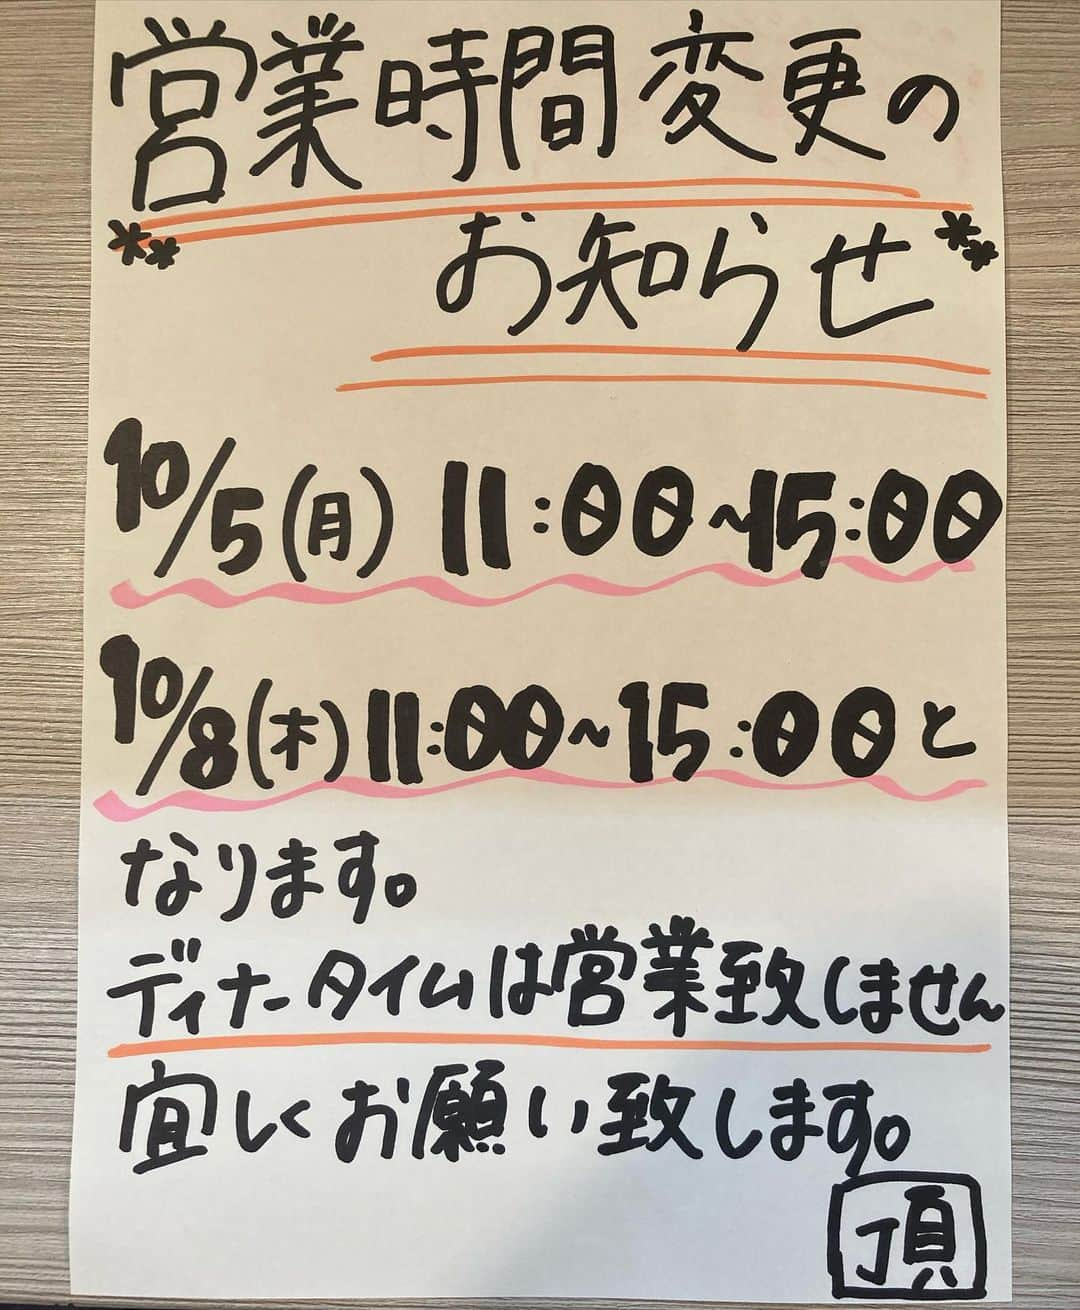 営業時間変更の
お知らせ
10/5(月) 11:00~15:00
10/8(木)11:00~15:00と
なります。
ディナータイムは営業致しません
宜しくお願い致します。
頂